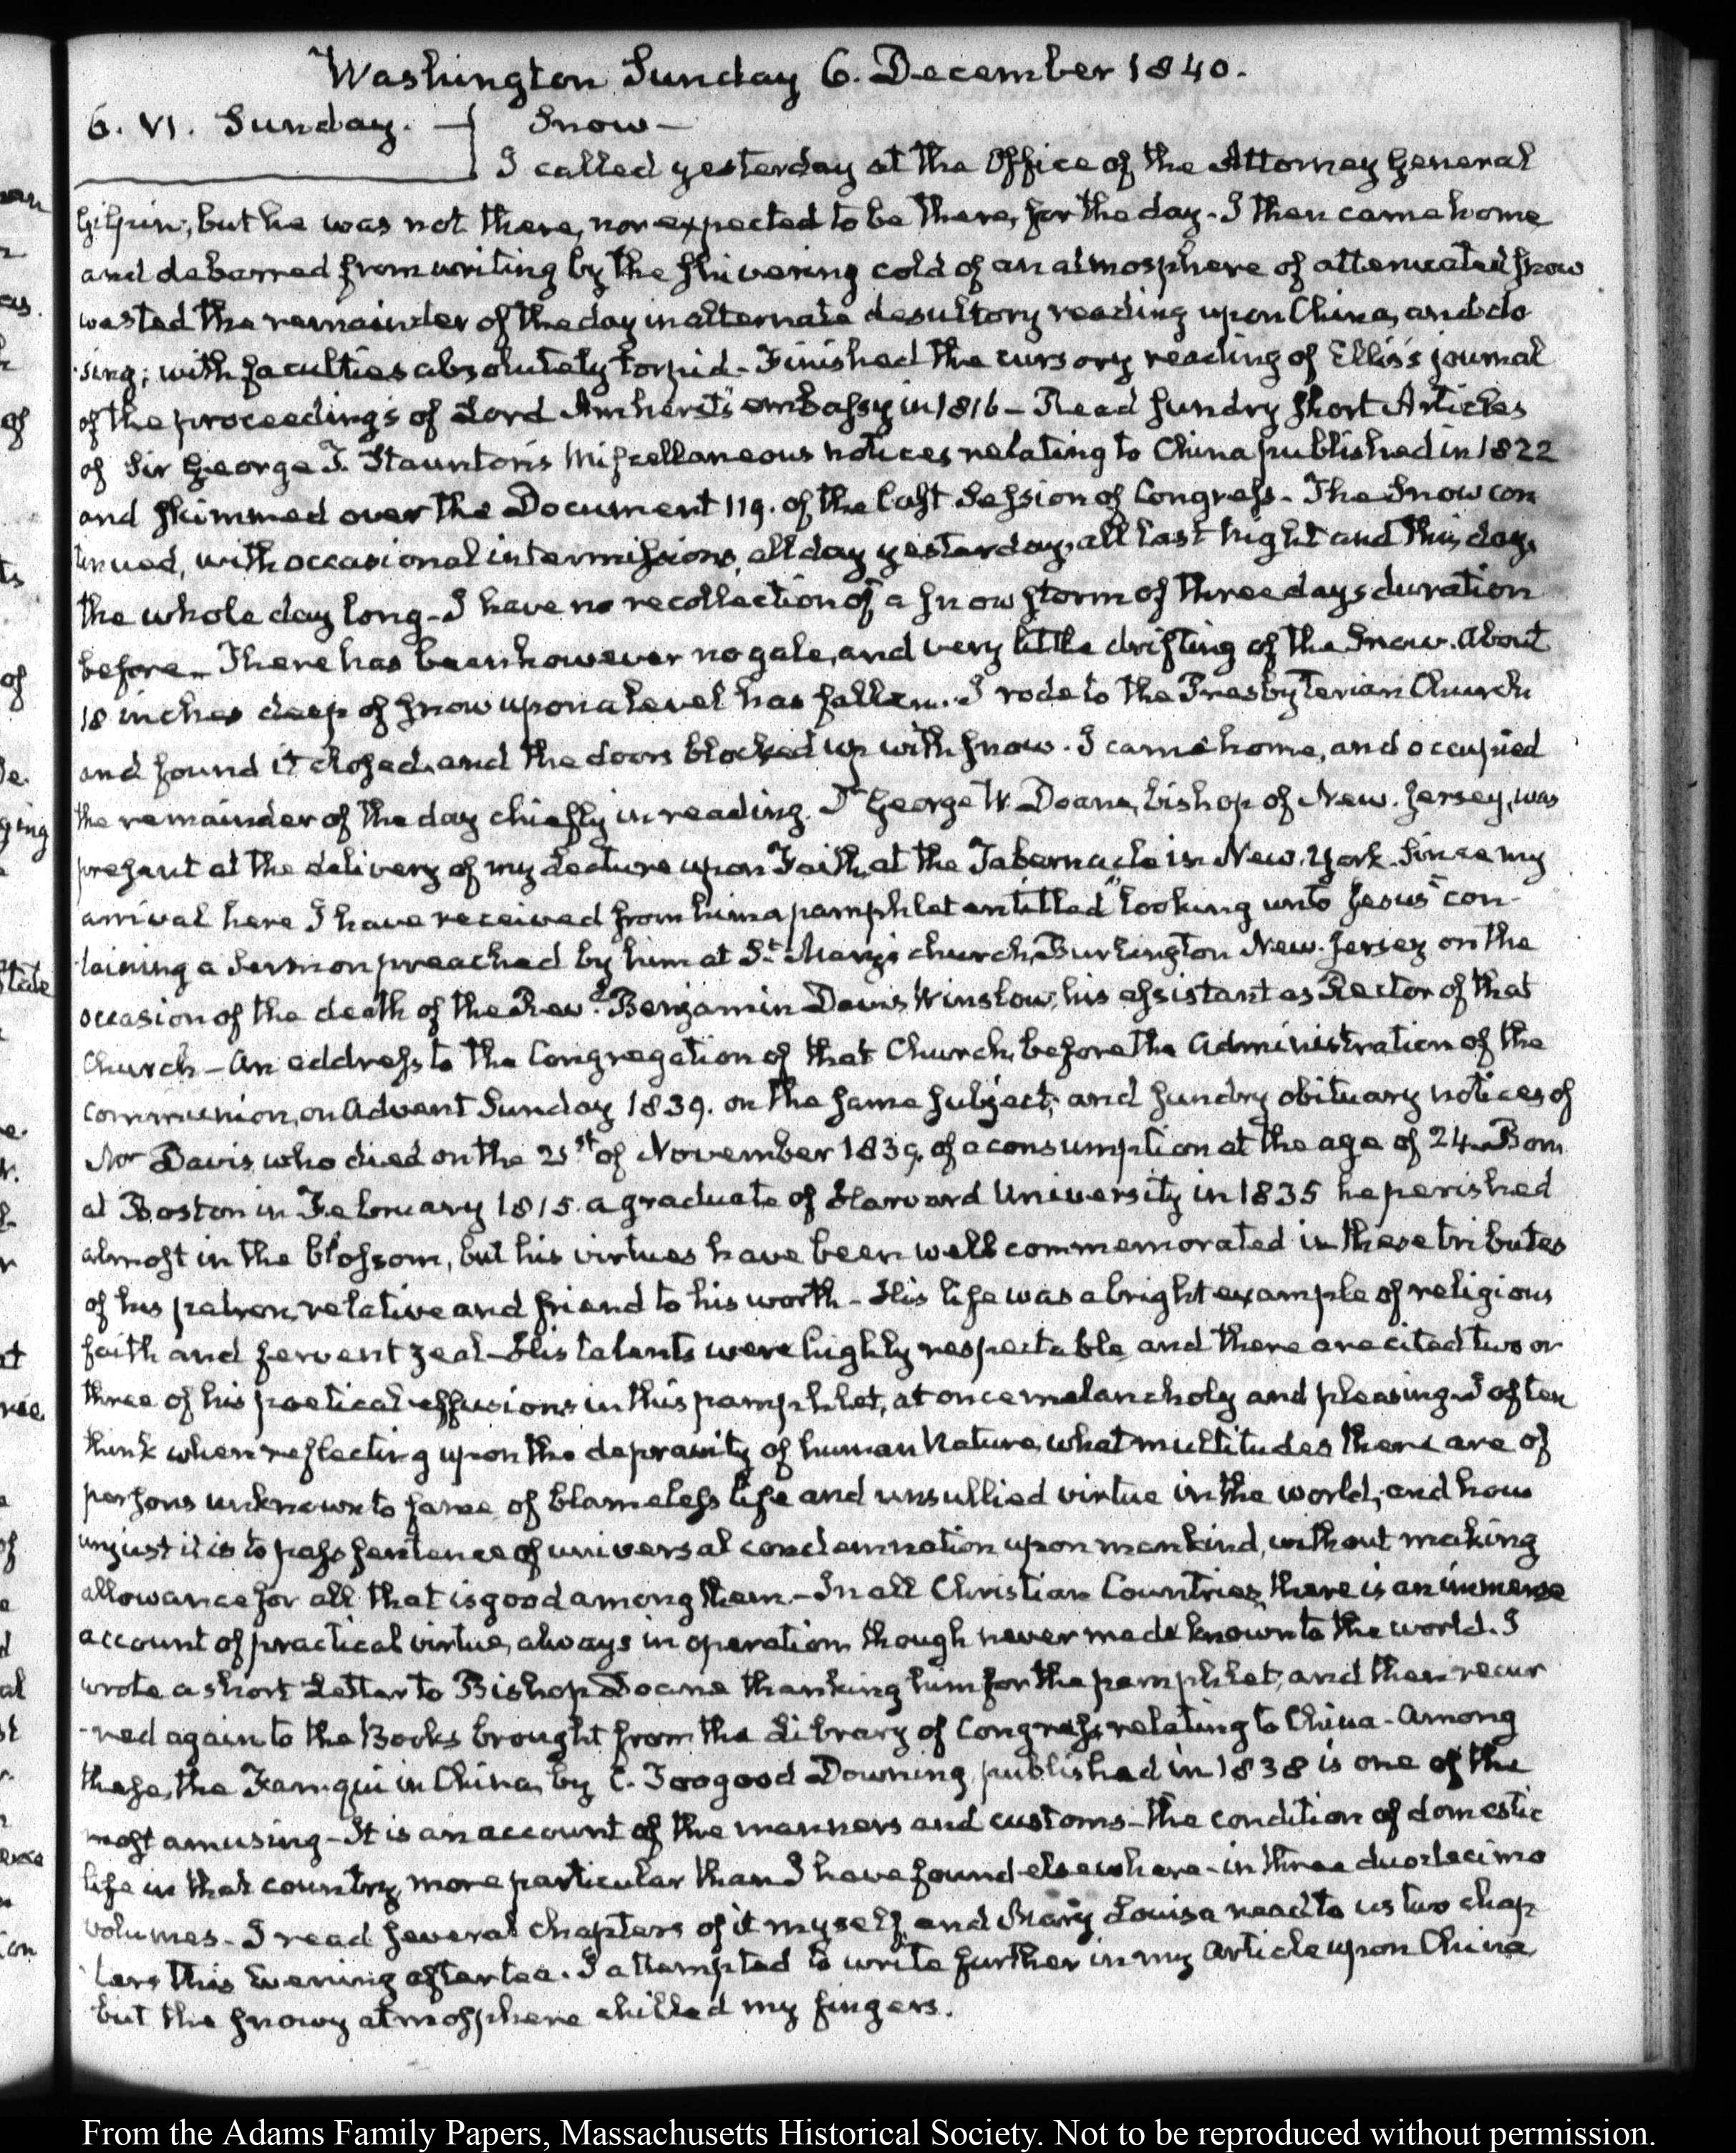 Washington Sunday 6. December 1840.
6. VI. Sunday. Snow—
I called yesterday at the Office of the Attorney General
Gilpin, but he was not there, nor expected to be there, for the day - I then came home
and debarred from writing by the shivering cold of an atmosphere of attenuated snow
wasted the remainder of the day in alternate desultory reading upon China, and do
sing; with faculties absolutely torpid - Finished the cursory reading of Ellis's journal
of the proceedings of Lord Amherst's embassy in 1816 - Read sundry short Articles
of Sir George T. Staunton's Miscellaneous notices relating to China published in 1822
and skimmed over the Document 119. of the last Session of Congress - The Snow con
tinued, with occasional intermissions, all day yesterday, all last Night and this day,
the whole day long - I have no recollection of a snow storm of three days duration
before - There has been however no gale, and very little drifting of the Snow. About
18 inches deep of snow upon a level has fallen. I rode to the Presbyterian Church
and found it closed, and the doors blocked up with snow. I came home, and occupied
the remainder of the day chiefly in reading. Dr George W. Doane, bishop of New-Jersey, was
present at the delivery of my Lecture upon Faith, at the Tabernacle in New-York. Since my
arrival here I have received from him a pamphlet entitled "looking unto Jesus" con-
taining a Sermon preached by him at St. Mary's church, Burlington New-Jersey on the
occasion of the death of the Revd. Benjamin Davis Winslow, his assistant as Rector of that
Church - An address to the Congregation of that Church, before the Administration of the
communion, on Advent Sunday 1839. on the same subject; and sundry obituary notices of
Mr Davis, who died on the 21st of November 1839. of a consumption at the age of 24. Born
at Boston in February 1815. a graduate of Harvard University in 1835 he perished
almost in the blossom, but his virtues have been well commemorated in these tributes
of his patron, relative and friend to his worth - His life was a bright example of religious
faith and fervent zeal - His talents were highly respectable and there are cited two or
three of his poetical effusions in this pamphlet, at once melancholy and pleasing. I often
think when reflecting upon the depravity of human Nature, what multitudes there are of
persons unknown to fame of blameless life and unsullied virtue in the world; and how
unjust it is to pass sentence of universal condemnation upon mankind, without making
allowance for all that is good among them - In all Christian Countries, there is an immense
account of practical virtue, always in operation though never made known to the world. I
wrote a short Letter to Bishop Doane thanking him for the pamphlet; and then recur
-red again to the Books brought from the Library of Congress relating to China - Among
these, the Fanqui in China, by C. Toogood Downing, published in 1838 is one of the
most amusing - It is an account of the manners and customs - the condition of domestic
life in that country, more particular than I have found elsewhere - in three duodecimo
volumes - I read several chapters of it myself, and Mary Louisa read to us two chap
ters this Evening after tea. I attempted to write further in my Article upon China
but the snowy atmosphere chilled my fingers.
From the Adams Family Papers, Massachusetts Historical Society. Not to be reproduced without permission.